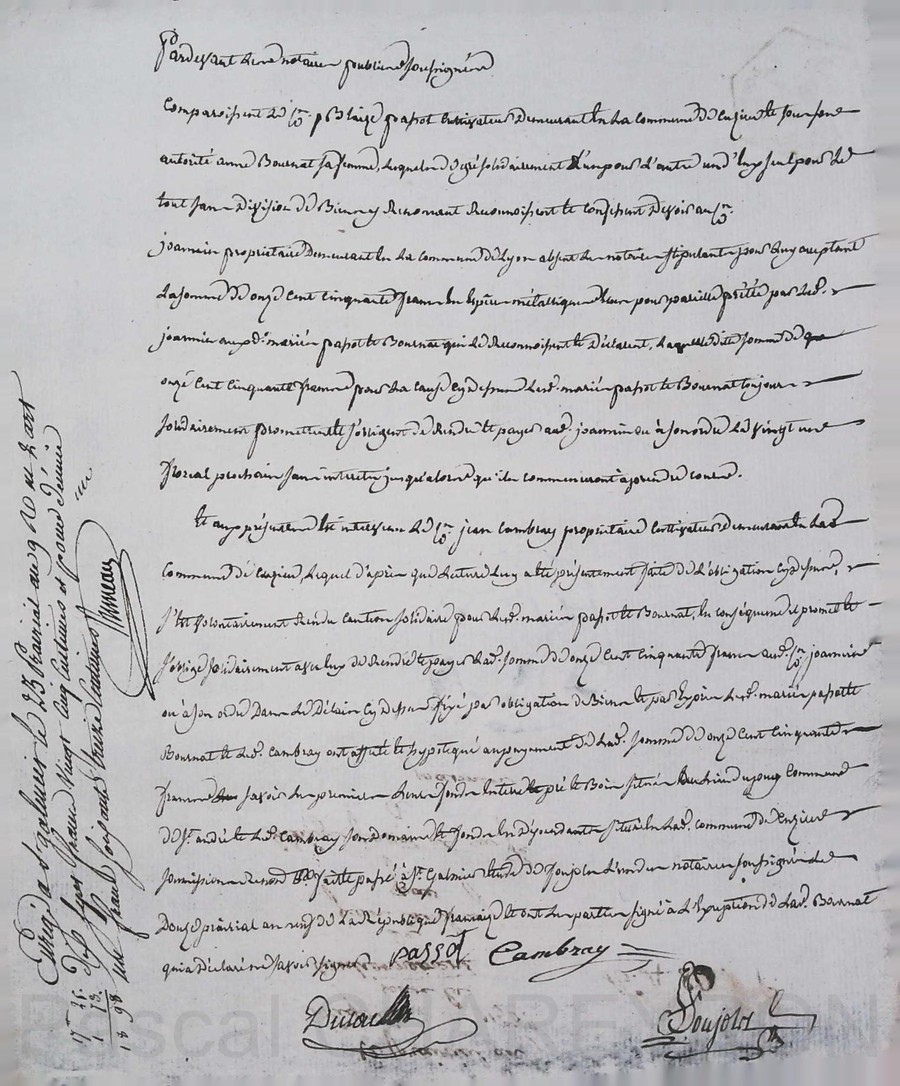 Pardevant les notaires publics soussignés
Comparoissent le d. Cn. Blaize passot cultivateur demeurant en la commune de Cuzieu et sous son
autorité anne Bournat sa femme, lesquels de gré solidairement l'un pour l'autre un d'eux seul pour le
tout sans division de Biens reconnoissent et confessent devoir au Cn.
joannin propriétaire demeurant en la commune de Lyon absent les notaires stipulants pour luy acceptant
la somme de onze cent cinquante francs en espèces métalliques pour pareille prêtée par led.
joannin auxd. mariés passot et Bournat qui le reconnoissent et déclarent, laquelle dite somme de
onze cent cinquante francs pour la cause cy dessus lesd. mariés passot et Bournat toujours
solidairement promettent et s'obligent de rendre et payer aud. joannin ou à son ordre le vingt un
floreal prochain sans interets jusqu'alors qu'ils commenceront à prendre cours.
Et aux présentes est intervenu le Cn. jean Cambray propriétaire cultivateur demeurant en lad.
commune de Cuzieu, lequel d'après que lecture luy a été présentement faite de l'obligation cy dessus,
s'est volontairement rendu caution solidaire pour lesd. mariés passot et Bournat, en conséquence il promet et
s'oblige solidairement avec eux de rendre et payer lad. somme de onze cent cinquante francs aud. Cn. joannin
ou à son ordre dans le délai cy dessus fixé par obligation de Biens et par exprès lesd. mariés passot et
Bournat et led. Cambray ont affecté et hypotéqué au payement de lad. somme de onze cent cinquante
francs savoir les premiers leurs fonds en terre pré et Bois situés commune
de St. andré et led. Cambray son domaine et fonds en dépendants situés en lad. commune de Cuzieu
soumission renon. fait et passé à St. Galmier étude de Soujols l'un des notaires soussignés le
Douze prairial an neuf de la République française et ont les parties signé à l'exception de lad. Bournat
qui a déclaré ne savoir signer
passot Cambray
Soujols
Enregé a St galmier le 23 Prairial an 9
Reçu francs vingt cinq centimes et pour
un franc soixante treize centimes